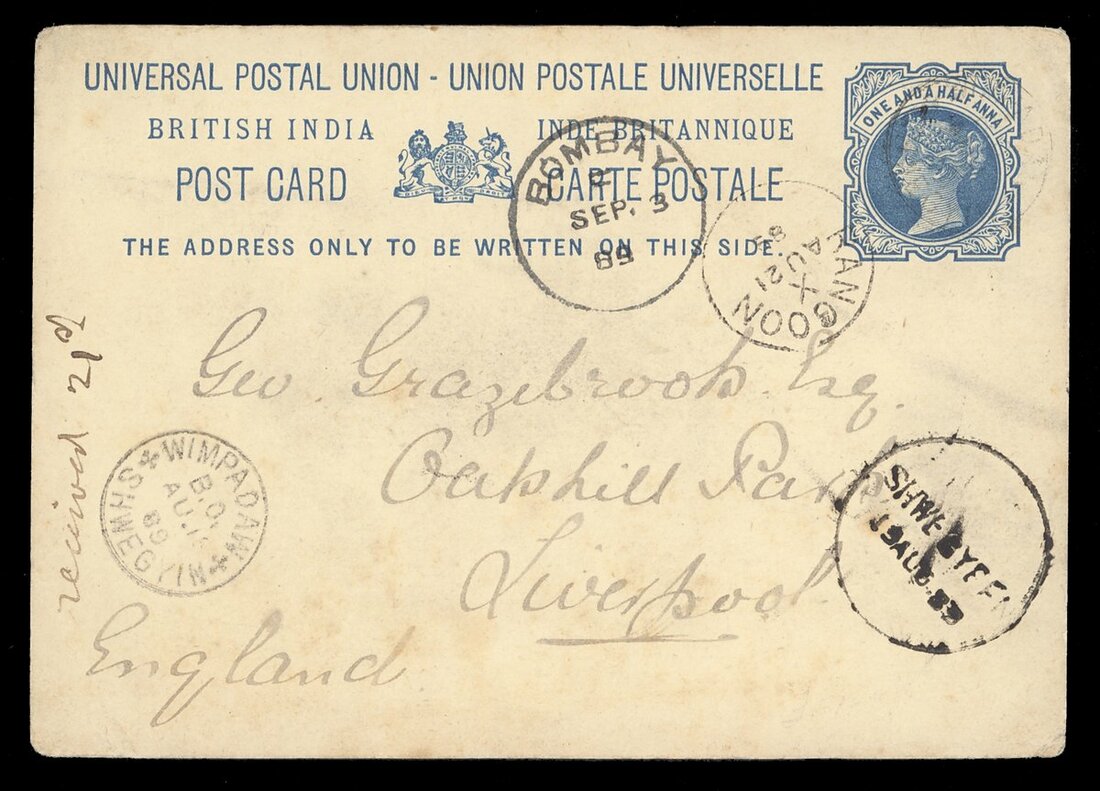 UNIVERSAL POSTAL UNION - UNION POSTALE UNIVERSELLE
BRITISH INDIA INDE BRITANNIQUE
POST CARD CARTE POSTALE
THE ADDRESS ONLY TO BE WRITTEN ON THIS SIDE.
ONE AND A HALF ANNA
BOMBAY
SEP. 3
89
RANGOON
X
AU 21
Geo. Grazebrook Esq.
Oakhill Park
Liverpool
England
received 21st
WIMPADAW
B.O.
AU.
89
SHWEGYIN
SHWE-GYEEN
19 AUG.